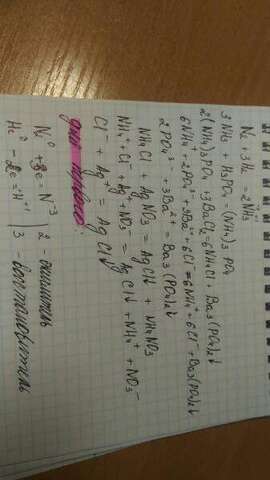 N₂ + 3H₂ = 2NH₃
3NH₃ + H₃PO₄ = (NH₄)₃PO₄
2(NH₄)₃PO₄ + 3BaCl₂ = 6NH₄Cl + Ba₃(PO₄)₂↓
6NH₄⁺ + 2PO₄³⁻ + 3Ba²⁺ + 6Cl⁻ = 6NH₄⁺ + 6Cl⁻ + Ba₃(PO₄)₂↓
2PO₄³⁻ + 3Ba²⁺ = Ba₃(PO₄)₂↓
NH₄Cl + AgNO₃ = AgCl↓ + NH₄NO₃
NH₄⁺ + Cl⁻ + Ag⁺ + NO₃⁻ = AgCl↓ + NH₄⁺ + NO₃⁻
Cl⁻ + Ag⁺ = AgCl↓
для первого:
N₂⁰ + 6e = N⁻³ | 2 окислитель
H₂⁰ - 2e = H⁺¹ | 3 - восстановитель